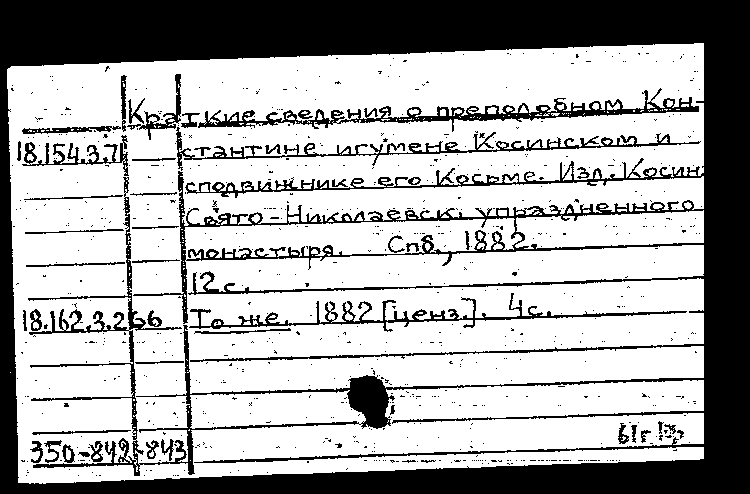 Краткие сведения о преподобном Кон-
18.154.3.71 стантине игумене Косинском и
сподвижнике его Косьме. Изд. Косин.
Свято-Николаевск. упраздненного
монастыря. Спб., 1882.
12с.
18.162.3.266 То же. 1882 [ценз.]. 4с.
350-842-843
61г